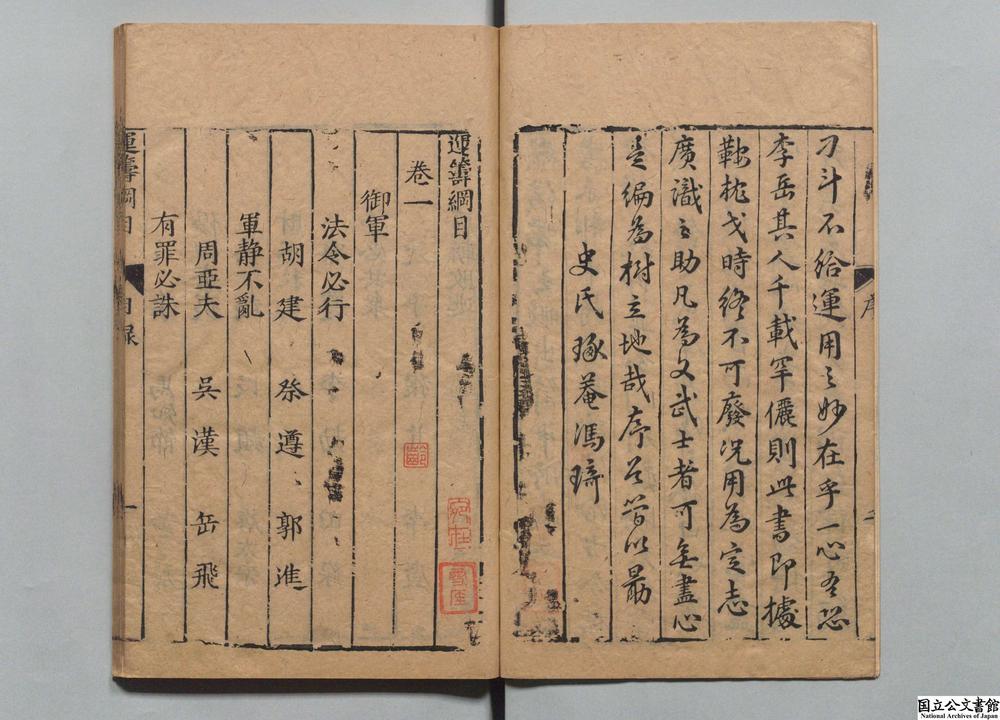 刁斗不給運用之妙在乎一心吾恐
李岳其人千載罕儷則此書即據
鞍枕戈時終不可廢况用為定志
廣識之助凡為文武士者可無盡心
是編為樹立地哉序
史氏琢菴馮琦
序
運籌綱目
卷一
御軍
法令必行
胡建 祭遵 郭進
軍静不亂
周亞夫 吳漢 岳飛
有罪必誅
運籌綱目 目录 一
国立公文書館
National Archives of Japan